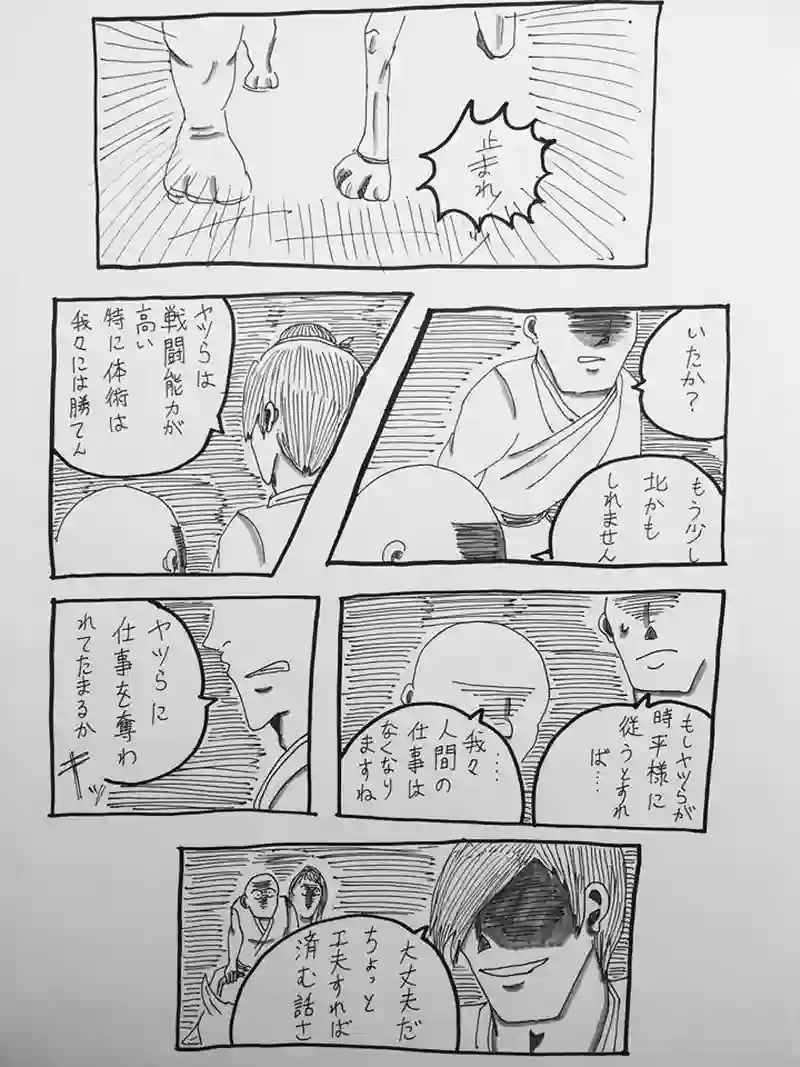 止まれ!
いたか?
もう少し
北かも
しれません
ヤツらは
戦闘能力が
高い
特に体術は
我々には勝てん
もしヤツらが
時平様に
従うとすれ
ば…
我々
……
人間の
仕事は
なくなり
ますね
ヤツらに
仕事を奪わ
れてたまるか
キッ
大丈夫だ
ちょっと
工夫すれば
済む話さ